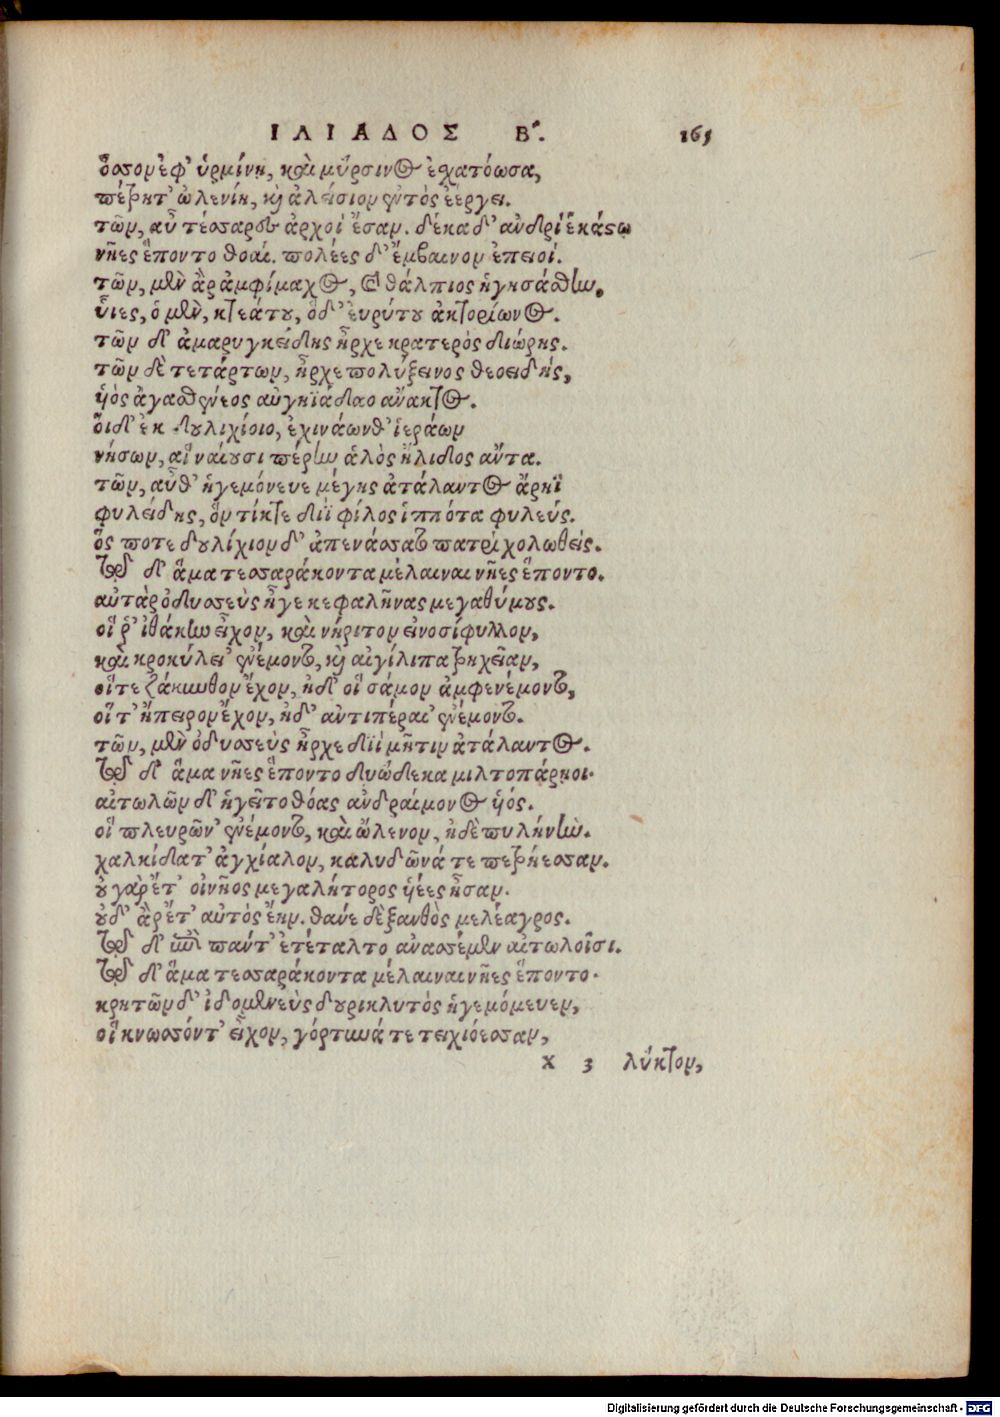 ΙΛΙΑΔΟΣ Β. 165
ὅσσον ἐφ' ὑρμίνη, καὶ μύρσινος ἐχατόωσα,
πέτρητ' ὠλενίη, κὶ ἀλείσιον ἐντὸς ἐέργει.
τῶν, αὖ τέσσαρες ἀρχοὶ ἔσαν. δέκα δ' ἀνδρὶ ἑκάστω
νῆες ἕποντο θοαί. πολέες δ' ἔμβαινον ἐπειοί.
τῶν, μὲν ἂρ ἀμφίμαχος, καὶ θάλπιος ἡγησάσθην,
ὗιες, ὁ μὲν, κτεάτου, ὁ δ' εὐρύτου ἀκτορίωνος.
τῶν δ' ἀμαρυγκείδης ἦρχε κρατερὸς διώρης.
τῶν δὲ τετάρτων, ἦρχε πολύξεινος θεοειδής,
υἱὸς ἀγασθένεος αὐγηϊάδαο ἄνακτος.
οἳ δ' ἐκ δουλιχίοιο, ἐχινάων θ' ἱεράων
νήσων, αἳ ναίουσι πέρην ἁλὸς ἤλιδος ἄντα.
τῶν, αὖθ' ἡγεμόνευε μέγης ἀτάλαντος ἄρηϊ
φυλείδης, ὃν τίκτε διῒ φίλος ἱππότα φυλεύς.
ὅς ποτε δουλίχιον δ' ἀπενάσσατο πατρὶ χολωθείς.
τῷ δ' ἅμα τεσσαράκοντα μέλαιναι νῆες ἕποντο.
αὐτὰρ ὀδυσσεὺς ἦγε κεφαλῆνας μεγαθύμους.
οἵ ῥ' ἰθάκην εἶχον, καὶ νήριτον εἰνοσίφυλλον,
καὶ κροκύλει' ἐνέμοντο, κὶ αἰγίλιπα τρηχεῖαν,
οἵ τε ζάκυνθον ἔχον, ἠδ' οἳ σάμον ἀμφενέμοντο,
οἵ τ' ἤπειρον ἔχον, ἠδ' ἀντιπέραι' ἐνέμοντο.
τῶν, μὲν ὀδυσσεὺς ἦρχε διῒ μῆτιν ἀτάλαντος.
τῷ δ' ἅμα νῆες ἕποντο δυώδεκα μιλτοπάρηοι.
αἰτωλῶν δ' ἡγεῖτο θόας ἀνδραίμονος υἱός.
οἳ πλευρῶν' ἐνέμοντο, καὶ ὤλενον, ἠδὲ πυλήνην.
χαλκίδα τ' ἀγχίαλον, καλυδῶνά τε πετρήεσσαν.
οὐ γὰρ ἔτ' οἰνῆος μεγαλήτορος υἱέες ἦσαν.
οὐδ' ἂρ ἔτ' αὐτὸς ἔην. θάνε δὲ ξανθὸς μελέαγρος.
τῷ δ' ἐπὶ πάντ' ἐτέταλτο ἀνασσέμεν αἰτωλοῖσι.
τῷ δ' ἅμα τεσσαράκοντα μέλαιναι νῆες ἕποντο.
κρητῶν δ' ἰδομενεὺς δουρικλυτὸς ἡγεμόνευεν,
οἳ κνωσσόν τ' εἶχον, γόρτυνά τε τειχιόεσσαν,
X 3 λύκτον,
Digitalisierung gefördert durch die Deutsche Forschungsgemeinschaft - DFG